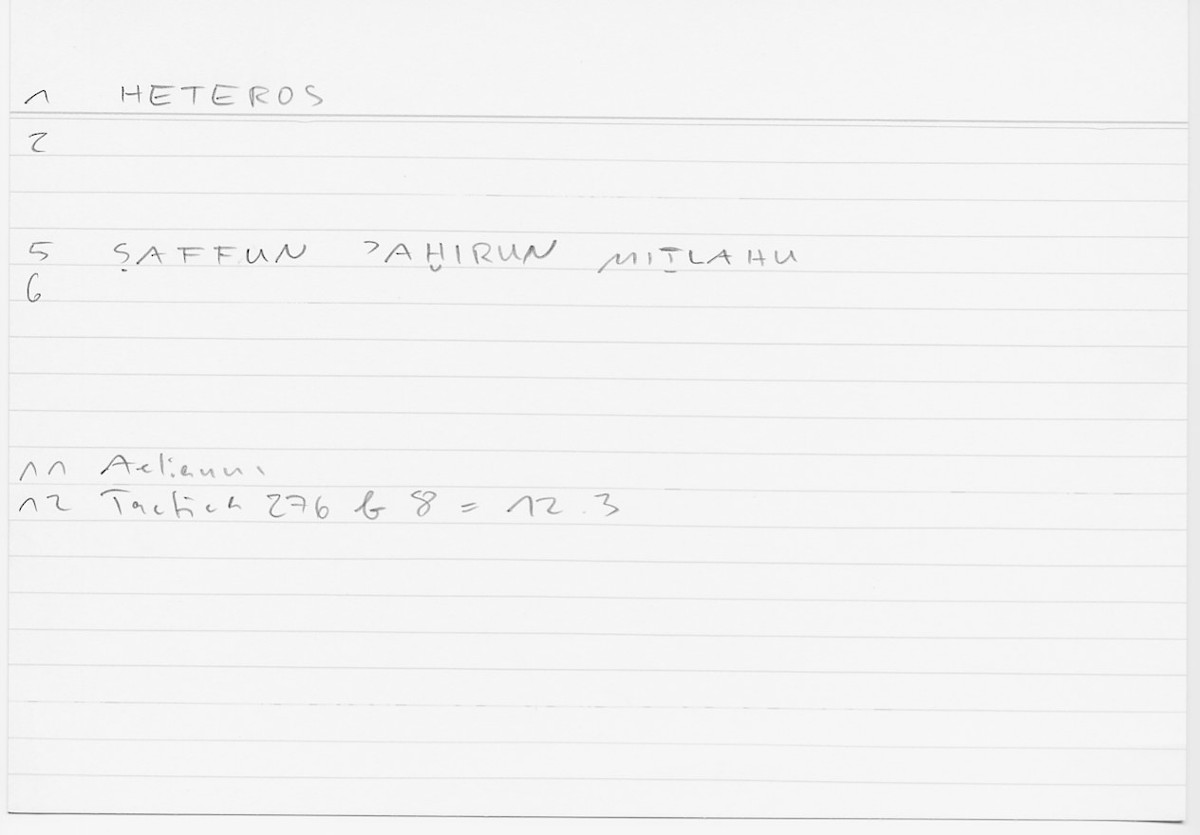 1 HETEROS
2
5 ṢAFFUN ʾAḪIRUN MIṮLAHU
6
11 Aelianus
12 Tactica 276 b 8 = 12.3